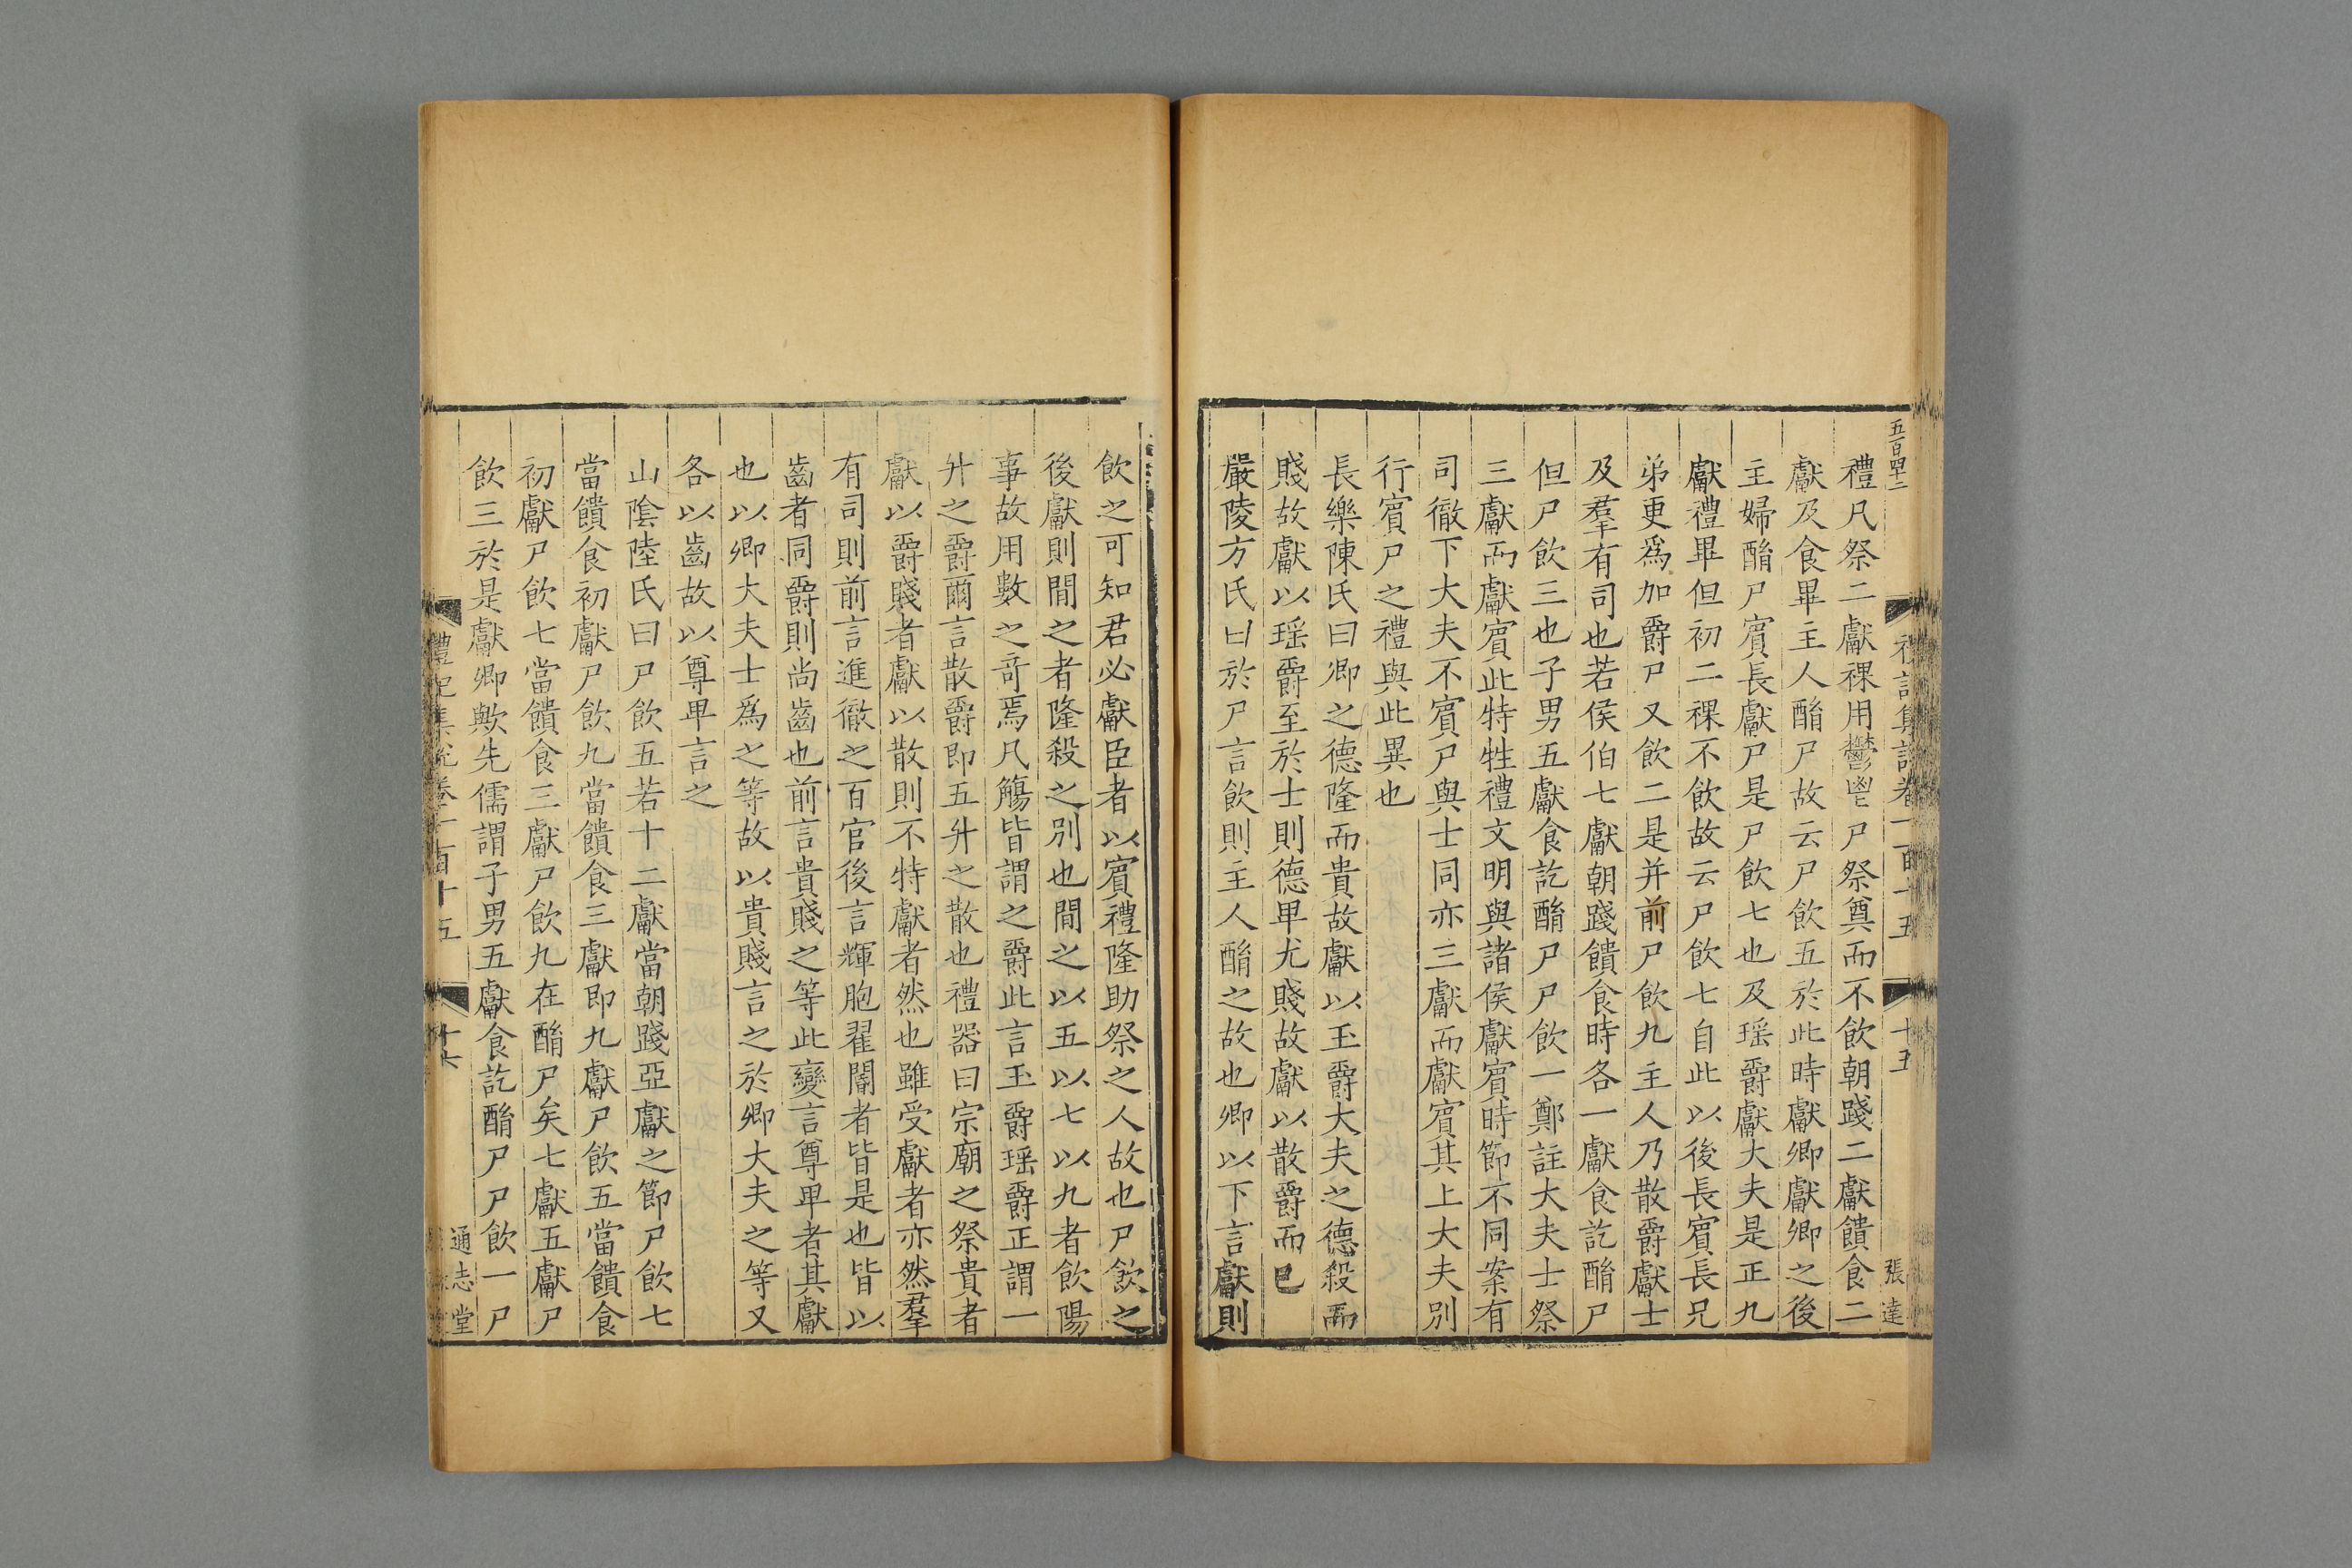 五百四十二
禮記集說卷一百十五
十五
張達
禮凡祭二獻祼用鬱鬯尸祭奠而不飲朝踐二獻饋食二
獻及食畢主人酳尸故云尸飲五於此時獻卿獻卿之後
主婦酳尸賓長獻尸是尸飲七也及瑤爵獻大夫是正九
獻禮畢但初二祼不飲故云尸飲七自此以後長賓長兄
弟更爲加爵尸又飲二是并前尸飲九主人乃散爵獻士
及羣有司也若侯伯七獻朝踐饋食時各一獻食訖酳尸
但尸飲三也子男五獻食訖酳尸尸飲一鄭註大夫士祭
三獻而獻賓此特牲禮文明與諸侯獻賓時節不同案有
司徹下大夫不賓尸與士同亦三獻而獻賓其上大夫別
行賓尸之禮與此異也
長樂陳氏曰卿之德隆而貴故獻以玉爵大夫之德殺而
賤故獻以瑤爵至於士則德卑尤賤故獻以散爵而已
嚴陵方氏曰於尸言飲則主人酳之故也卿以下言獻則
飲之可知君必獻臣者以賓禮隆助祭之人故也尸飲之
後獻則間之者隆殺之別也間之以五以七以九者飲陽
事故用數之奇焉凡觴皆謂之爵此言玉爵瑤爵正謂一
升之爵爾言散爵即五升之散也禮器曰宗廟之祭貴者
獻以爵賤者獻以散則不特獻者然也雖受獻者亦然羣
有司則前言進徹之百官後言煇胞翟閽者皆是也皆以
齒者同爵則尚齒也前言貴賤之等此變言尊卑者其獻
也以卿大夫士爲之等故以貴賤言之於卿大夫之等又
各以齒故以尊卑言之
山陰陸氏曰尸飲五若十二獻當朝踐亞獻之節尸飲七
當饋食初獻尸飲九當饋食三獻即九獻尸飲五當饋食
初獻尸飲七當饋食三獻尸飲九在酳尸矣七獻五獻尸
飲三於是獻卿歟先儒謂子男五獻食訖酳尸尸飲一尸
禮記集說卷一百十五
十六
通志堂